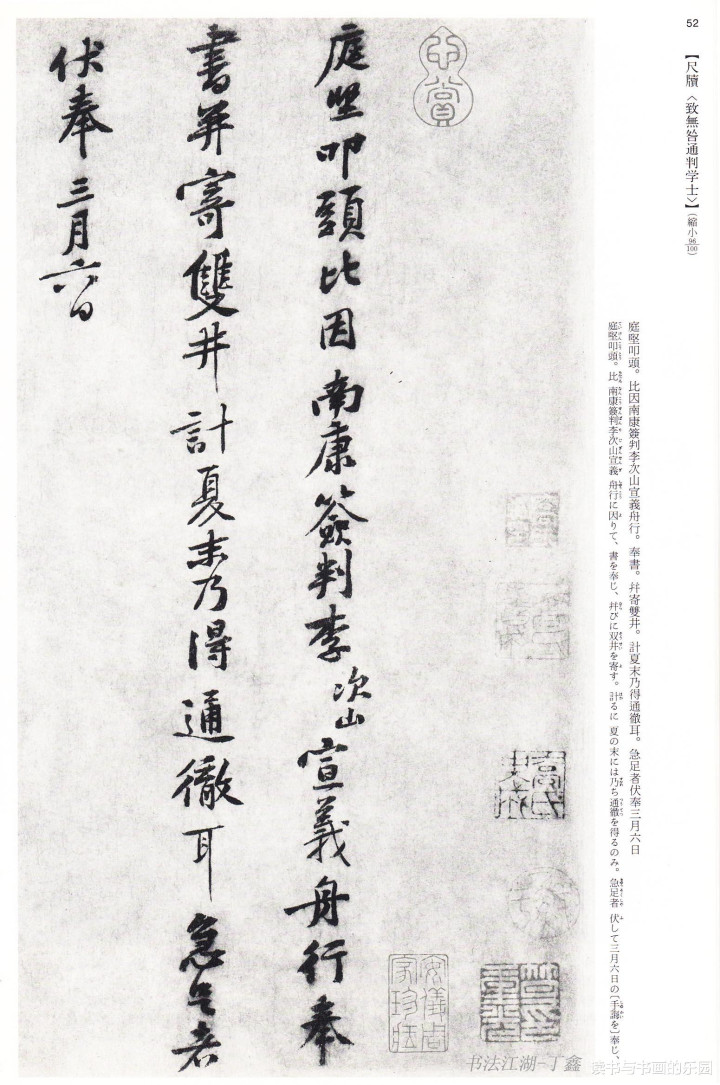 52
【尺牘〈致無咎通判学士〉】（縮小96/100）
庭堅叩頭。比因南康簽判李次山宣義舟行。奉書。幷寄雙井。計夏末乃得通徹耳。急足者伏奉三月六日
庭堅叩頭。比 南康簽判李次山宣義 舟行に因りて、書を奉じ、幷びに双井を寄す。計るに 夏の末には乃ち通徹を得るのみ。急足者 伏して三月六日の〔手誨を〕奉じ、
庭堅叩頭比因南康簽判李次山宣義舟行奉
書并寄雙井計夏末乃得通徹耳急足者
伏奉三月六日
安儀周家珍藏
书法江湖-丁鑫
书与书画的乐园